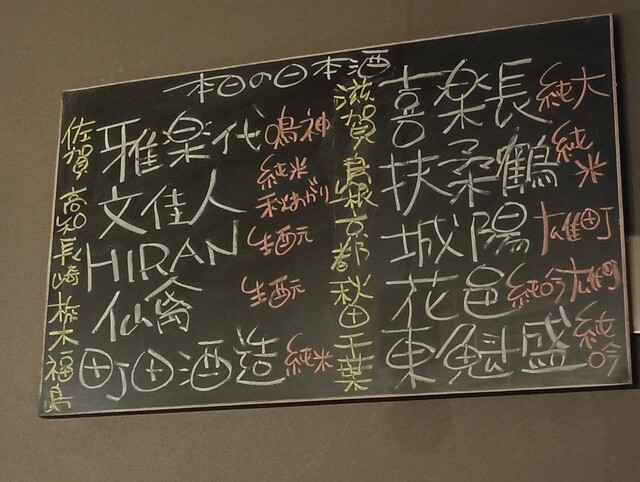 本日の日本酒
滋賀 喜楽長 純大
島根 扶桑鶴 純米
京都 城陽 雄町
秋田 花邑 純吟 雄町
千葉 東魁盛 純吟
佐賀 雅楽代 鳴神
高知 文佳人 純米 秋あがり
長崎 HIRAN 生酛
栃木 仙禽 生酛
福島 町田酒造 純米